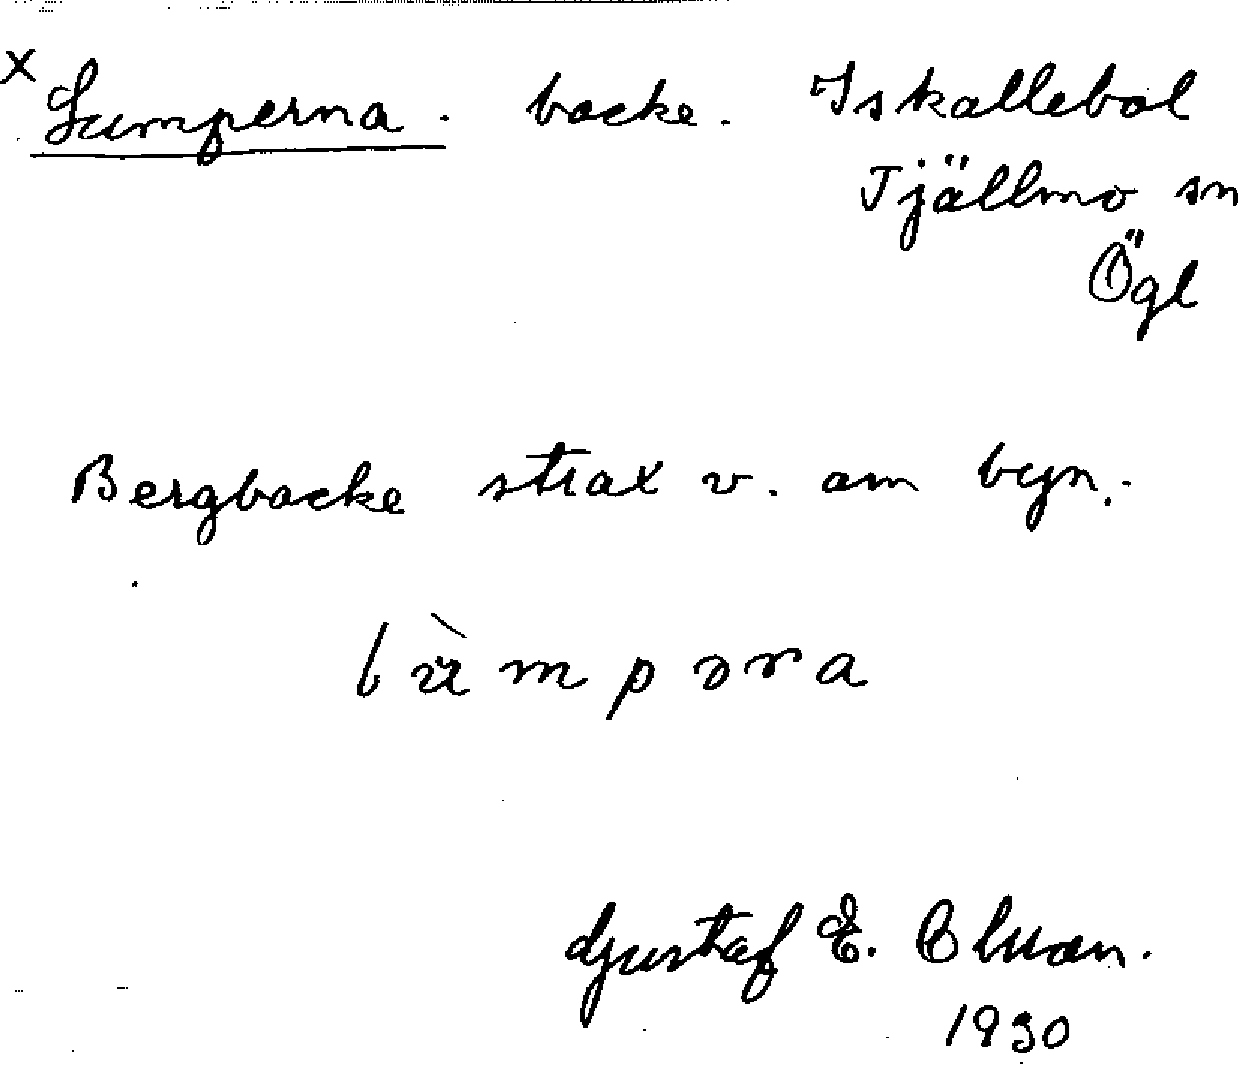 x Lumperna. backe. Iskallebol
Tjällmo sn
Ögl
Bergbacke strax v. om byn.
Gustaf E.
1930